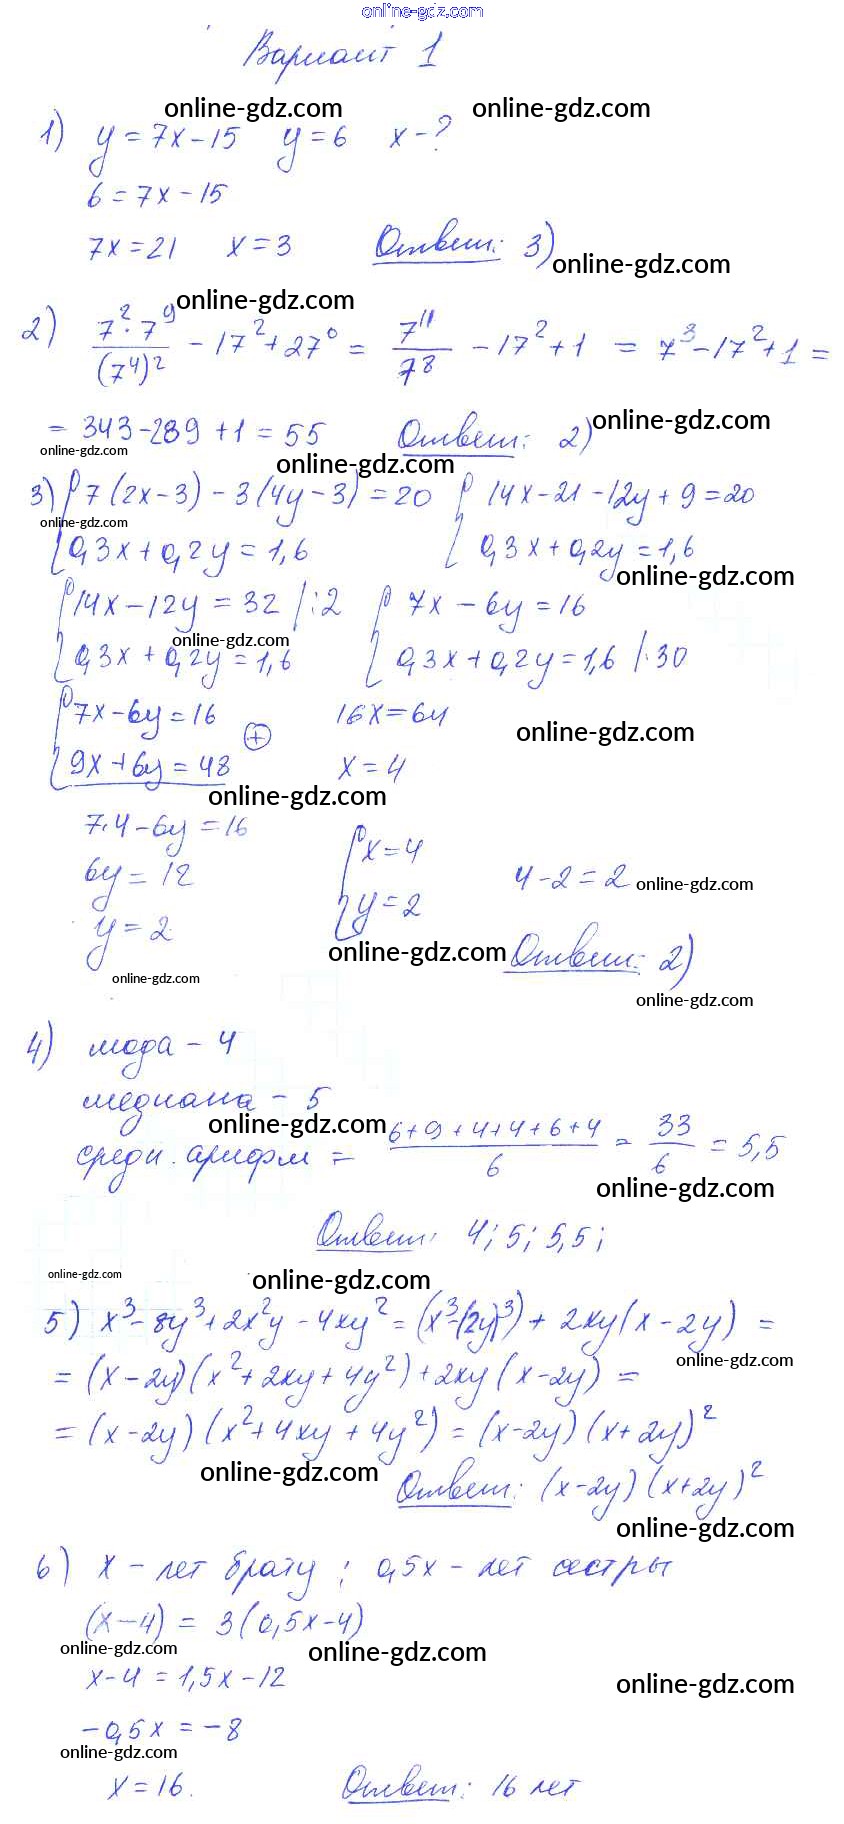 online-gdz.com
Вариант 1
online-gdz.com online-gdz.com
1) y = 7x - 15 y = 6 x - ?
6 = 7x - 15
7x = 21 x = 3 Ответ: 3)
online-gdz.com
online-gdz.com
2) (7^2 · 7^9)/(7^4)^2 - 17^2 + 27^0 = 7^11/7^8 - 17^2 + 1 = 7^3 - 17^2 + 1 =
= 343 - 289 + 1 = 55 Ответ: 2)
online-gdz.com
online-gdz.com
online-gdz.com
3) { 7(2x - 3) - 3(4y - 3) = 20 { 14x - 21 - 12y + 9 = 20
online-gdz.com
0,3x + 0,2y = 1,6 0,3x + 0,2y = 1,6
online-gdz.com
{ 14x - 12y = 32 /:2 { 7x - 6y = 16
online-gdz.com
0,3x + 0,2y = 1,6 0,3x + 0,2y = 1,6 /·30
{ 7x - 6y = 16 ⊕ 16x = 64
online-gdz.com
9x + 6y = 48 x = 4
online-gdz.com
7·4 - 6y = 16 { x = 4
6y = 12 4 - 2 = 2 online-gdz.com
y = 2 y = 2
online-gdz.com
Ответ: 2)
online-gdz.com
online-gdz.com
4) мода - 4
медиана - 5
online-gdz.com
средн. арифм = (6+9+4+4+6+4)/6 = 33/6 = 5,5
online-gdz.com
Ответ: 4; 5; 5,5;
online-gdz.com online-gdz.com
5) x^3 - 8y^3 + 2x^2y - 4xy^2 = (x^3 - (2y)^3) + 2xy(x - 2y) =
online-gdz.com
= (x - 2y)(x^2 + 2xy + 4y^2) + 2xy(x - 2y) =
= (x - 2y)(x^2 + 4xy + 4y^2) = (x - 2y)(x + 2y)^2
online-gdz.com
Ответ: (x - 2y)(x + 2y)^2
online-gdz.com
6) x - лет брату; 0,5x - лет сестры
(x - 4) = 3(0,5x - 4)
online-gdz.com online-gdz.com
x - 4 = 1,5x - 12
online-gdz.com
-0,5x = -8
online-gdz.com
x = 16. Ответ: 16 лет